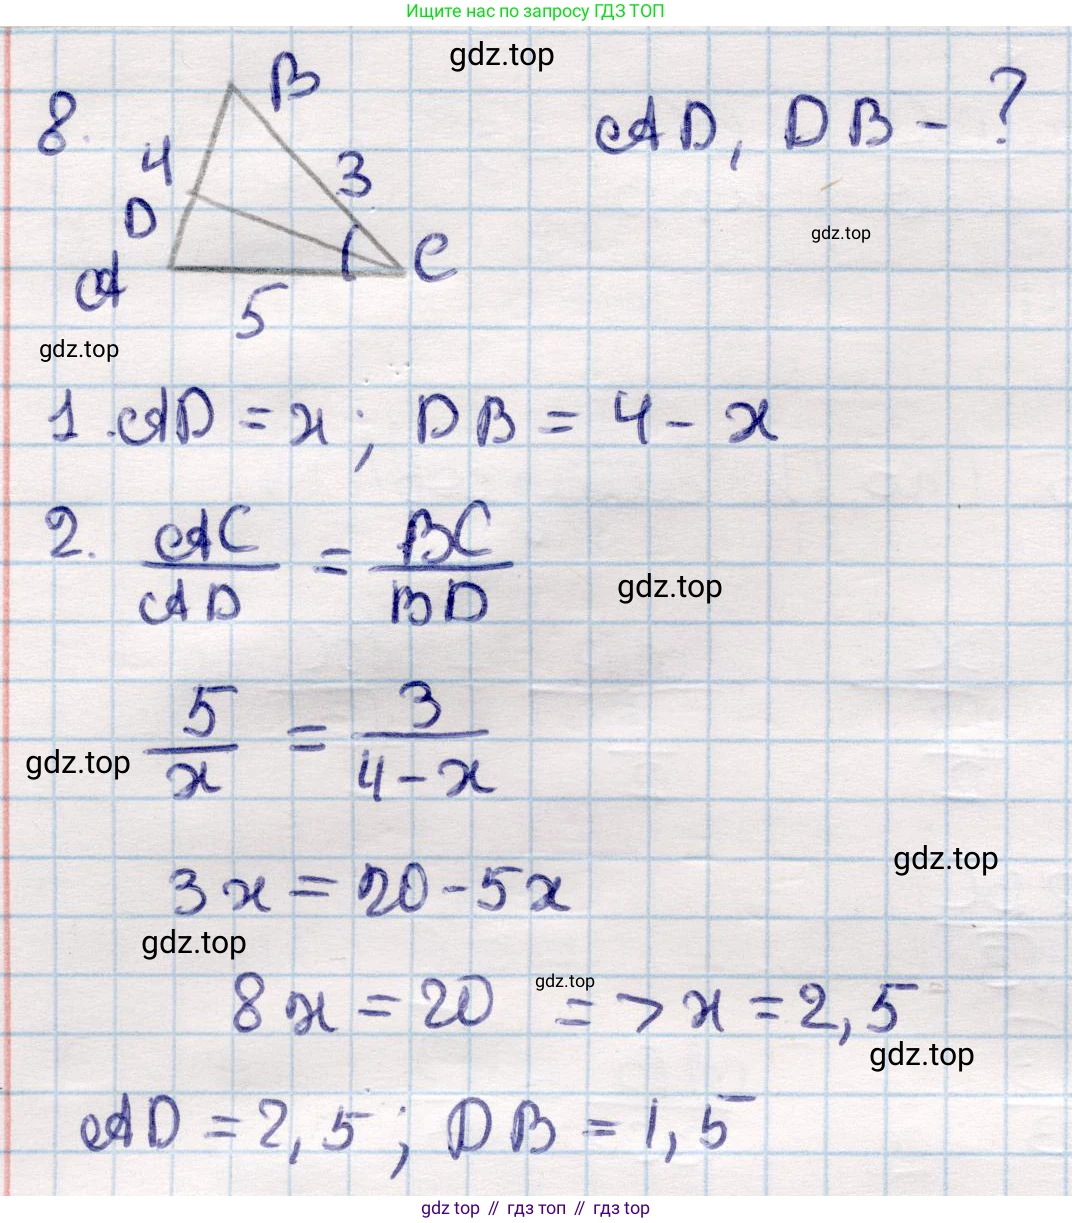 Ищите нас по запросу ГДЗ ТОП
gdz.top
8.
B
AD, DB - ?
4
3
D
gdz.top
A
C
5
gdz.top
1. AD = x; DB = 4 - x
2. AC/AD = BC/BD
gdz.top
5/x = 3/(4-x)
gdz.top
gdz.top
3x = 20 - 5x
gdz.top
gdz.top
8x = 20 => x = 2,5
gdz.top
AD = 2,5; DB = 1,5
gdz top // гдз топ // gdz top